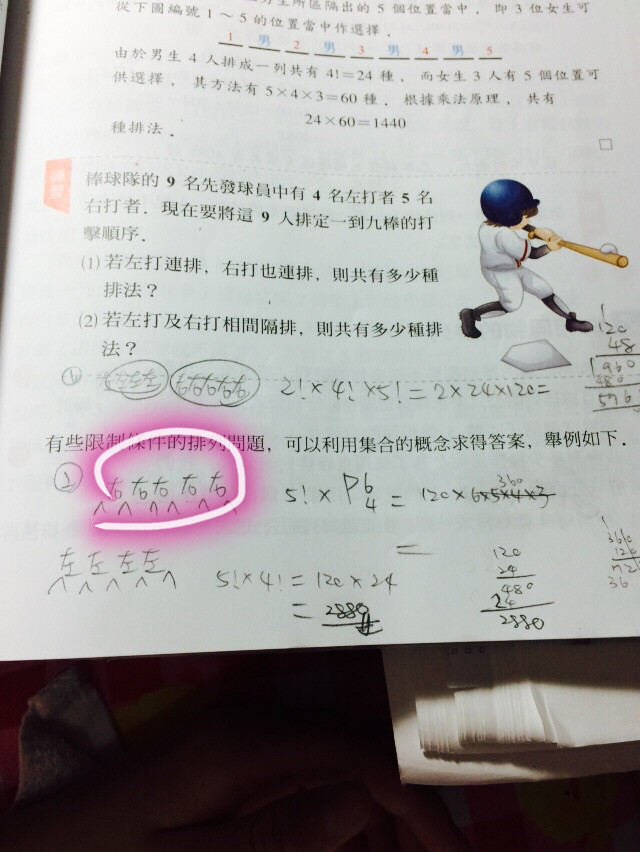 生所區隔出的 5 個位置當中，即 3 位女生可
從下圖編號 1～5 的位置當中作選擇．
1 男 2 男 3 男 4 男 5
由於男生 4 人排成一列共有 4!=24 種，而女生 3 人有 5 個位置可
供選擇，其方法有 5×4×3=60 種．根據乘法原理，共有
24×60=1440
種排法．
練習
棒球隊的 9 名先發球員中有 4 名左打者 5 名
右打者．現在要將這 9 人排定一到九棒的打
擊順序．
(1) 若左打連排，右打也連排，則共有多少種
排法？
(2) 若左打及右打相間隔排，則共有多少種排
法？
右右右右右 2!×4!×5!=2×24×120=
120
48
960
480
576
有些限制條件的排列問題，可以利用集合的概念求得答案，舉例如下．
② 右右右右右 5!×P64=120×6×5×4×3
360
=
左左左左 5!×4!=120×24
=2880
120
24
480
24
2880
360
120
72
36